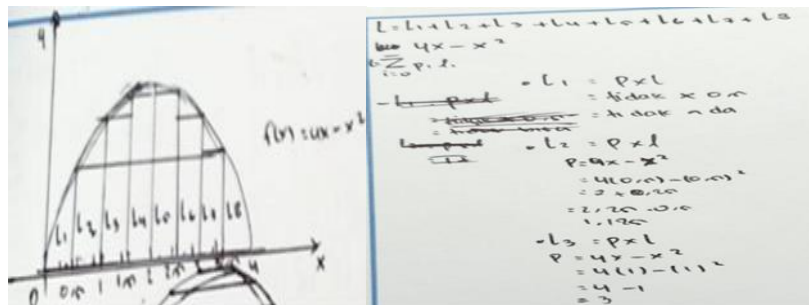 y
f(x) = 4x - x²
L1 L2 L3 L4 L5 L6 L7 L8
0 0,5 1 1,5 2 2,5 4 x
L = L1 + L2 + L3 + L4 + L5 + L6 + L7 + L8
4x - x²
∑ i=0 p. l.
• L1 = p x l
= tidak x 0,5
= tidak ada
• L2 = p x l
P = 4x - x²
= 4(0,5) - (0,5)²
= 2 + 0,25
= 2,25 . 0,5
1,125
• L3 = p x l
P = 4x - x²
= 4(1) - (1)²
= 4 - 1
= 3